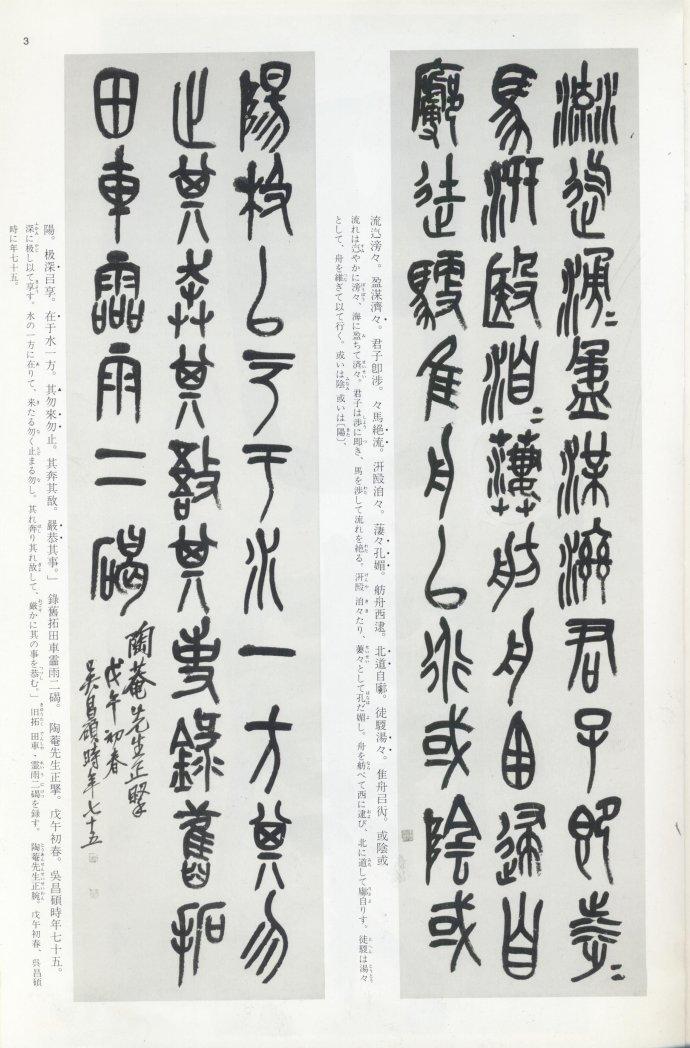 流迄滂々盈渼濟君子即涉々
馬汧殹洎々萋舫舟西逮自
廓徒驟隹舟㠯行或陰或
流迄滂々。盈渼濟々。君子卽涉。々馬絶流。汧殹洎々。萋々孔媚。舫舟西逮。北道自廓。徒驟湯々。隹舟㠯衍。或陰或
流れは迄やかに滂々、海に盈ちて済々。君子は渉に即き、馬を渉して流れを絶る。汧殹洎々たり、萋々として孔だ媚し。舟を舫べて西に逮び、北に道して廓自りす。徒驟は湯々
として、舟を維ぎて以て行く。或いは陰、或いは〔陽〕、
陽极㠯于水一方其勿
止其奔其敔其事錄舊拓
田車霝雨二碣
陶菴先生正擊
戊午初春
吳昌碩時年七十五
陽。极深㠯享。在于水一方。其勿來勿止。其奔其敔。嚴恭其事。」錄舊拓田車霝雨二碣。陶菴先生正擊。戊午初春。吳昌碩時年七十五。
深に极し以て享す。水の一方に在りて、来たる勿く止まる勿し。其れ奔り其れ敔して、厳かに其の事を恭む。」旧拓田車・霊雨二碣を録す。陶菴先生正腕。戊午初春、呉昌碩
時に年七十五。
3